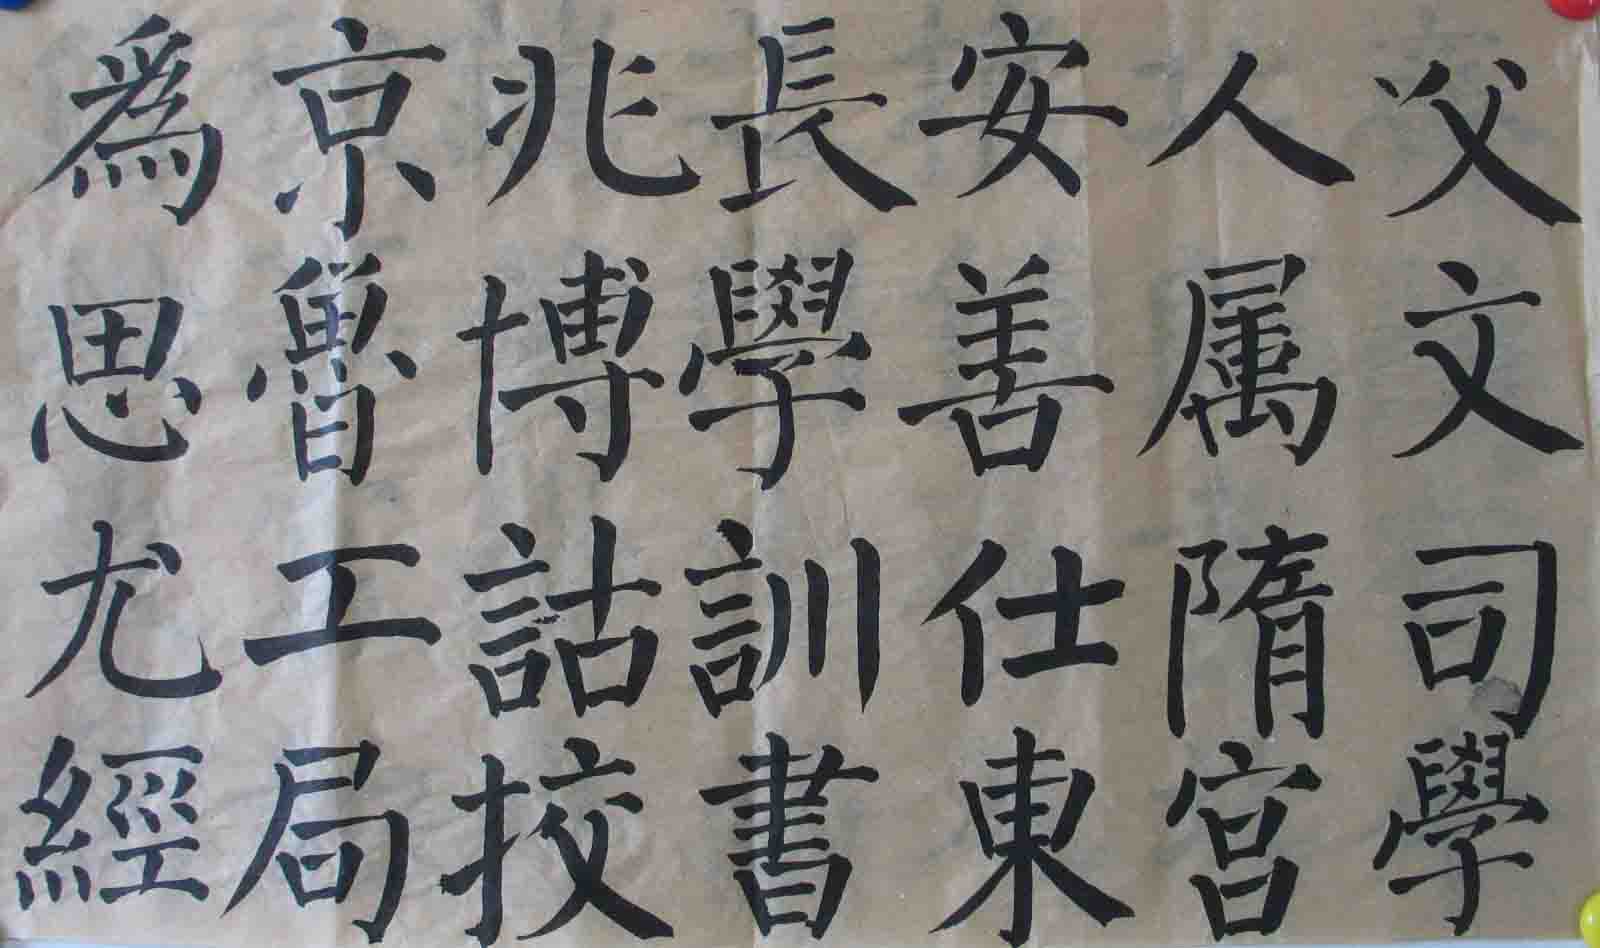 爲京兆長安人父
思魯博學善属文
尤工詁訓仕隋司
經局挍書東宫學